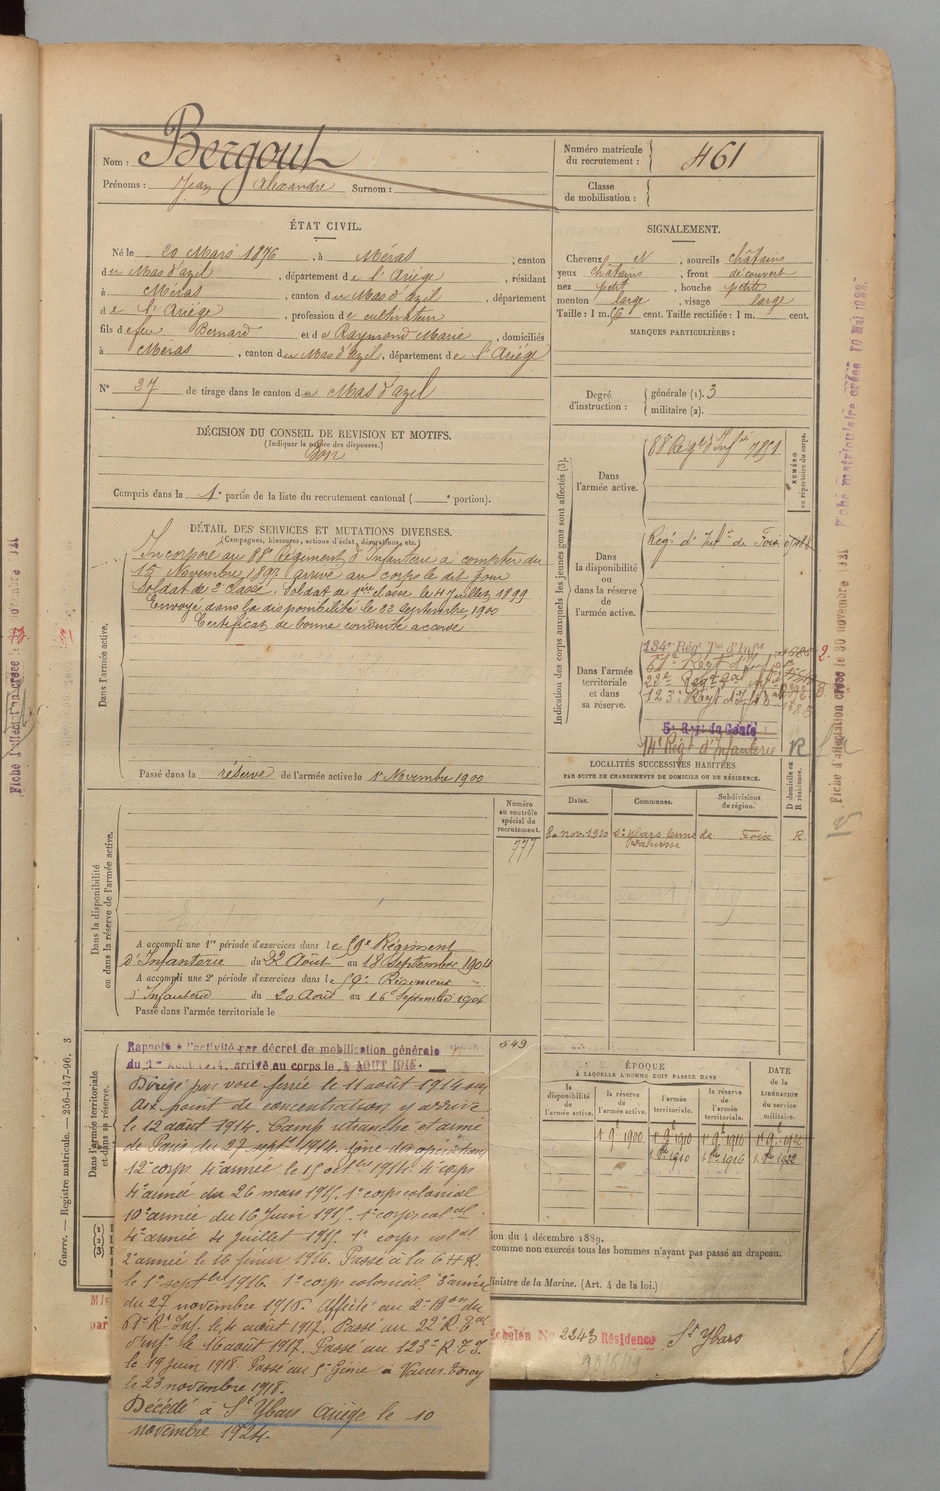 Nom : Bergout
Prénoms : Jean Alexandre Surnom :
Numéro matricule du recrutement : 461
Classe de mobilisation :
ÉTAT CIVIL.
Né le 20 Mars 1876, à Méras, canton
du Mas d'azil, département de l'Ariège, résidant
à Méras, canton du Mas d'azil, département
de l'Ariège, profession de cultivateur
fils de feu Bernard et de Raymond Marie, domiciliés
à Méras, canton du Mas d'azil, département de l'Ariège
N° 37 de tirage dans le canton du Mas d'azil
SIGNALEMENT.
Cheveux N, sourcils châtains
yeux châtains, front découvert
nez petit, bouche petite
menton large, visage large
Taille : 1 m. cent. Taille rectifiée : 1 m. cent.
MARQUES PARTICULIÈRES :
Degré d'instruction : générale (1). 3
militaire (2).
DÉCISION DU CONSEIL DE REVISION ET MOTIFS.
(Indiquer la nature des dispenses.)
Bon
Compris dans la 1e partie de la liste du recrutement cantonal ( portion).
DÉTAIL DES SERVICES ET MUTATIONS DIVERSES.
(Campagnes, blessures, actions d'éclat, décorations, etc.)
Dans l'armée active.
Incorporé au 88e Régiment d'Infanterie à compter du
15 Novembre 1897 arrivé au corps le dit jour
Soldat de 2e classe. Soldat de 1ère classe le 4 Juillet 1899
Envoyé dans la disponibilité le 22 septembre 1900
Certificat de bonne conduite accordé
Passé dans la réserve de l'armée active le 1er Novembre 1900
Indication des corps auxquels les jeunes gens sont affectés (3).
NUMÉRO au répertoire du corps.
Dans l'armée active.
88e Régt d'Infie 7851
Dans la disponibilité ou dans la réserve de l'armée active.
Régt d'Infie de Foix
Dans l'armée territoriale et dans sa réserve.
134e Régt Tal d'Infie
123e Régt
5e Régt du Génie
14e Régt d'infanterie R
LOCALITÉS SUCCESSIVES HABITÉES
PAR SUITE DE CHANGEMENTS DE DOMICILE OU DE RÉSIDENCE.
Dates. Communes. Subdivisions de région. D domicile ou R résidence.
8 nov. 1920 St Ybars Foix R
Numéro au contrôle spécial du recrutement.
777
Dans la disponibilité ou dans la réserve de l'armée active.
A accompli une 1re période d'exercices dans le 59e Régiment
d'Infanterie du 22 Août au 18 septembre 1904
A accompli une 2e période d'exercices dans le 59e Régiment
d'Infanterie du 20 Août au 16 Septembre 1906
Passé dans l'armée territoriale le
549
Dans l'armée territoriale et dans sa réserve.
Rappelé à l'activité par décret de mobilisation générale
du 1er Août 1914, arrivé au corps le 4 AOUT 1915.
Dirigé par voie ferrée le 11 août 1914 sur
point de concentration y arrivé
le 12 août 1914. Camp retranché et armé
de Paris du 27 septbre 1914. Zône des opérations
12e corps 4e armée le 15 octbre 1914. 4e corps
4e armée du 26 mars 1915. 1er corps colonial
10e armée du 16 Juin 1915. 1er corps colal
4e armée 4 juillet 1915. 1er corps colal
2e armée le 16 février 1916. Passé à la 6 H.R.
le 1er septbre 1916. 1er corps colonial 3e armée
du 27 novembre 1916. Affecté au 2e Bon du
61e Rt Inf. le 4 août 1917. Passé au 22e R. Tal
d'inf. le 16 août 1917. Passé au 123e R.T.I.
le 19 juin 1918. Passé au 5e Génie à Vaires Torcy
le 23 novembre 1918.
Décédé à St Ybars Ariège le 10
novembre 1924.
ÉPOQUE
À LAQUELLE L'HOMME DOIT PASSER DANS
la disponibilité de l'armée active. la réserve de l'armée active. l'armée territoriale. la réserve de l'armée territoriale.
DATE de la LIBÉRATION du service militaire.
1er 9bre 1900 1er 9bre 1910 1er 9bre 1916 1er 9bre 1922
1er 8bre 1910 1er 8bre 1916 1er 8bre 1922
ion du 4 décembre 1889.
comme non exercés tous les hommes n'ayant pas passé au drapeau.
Ministre de la Marine. (Art. 4 de la loi.)
Echelon N° 2243 Résidence St Ybars
Guerre. — Registre matricule. — 256-147-96. 3
Fiche matriculaire créée 10 Mai 1922.
Fiche d'affectation créée le 30 novembre 1921